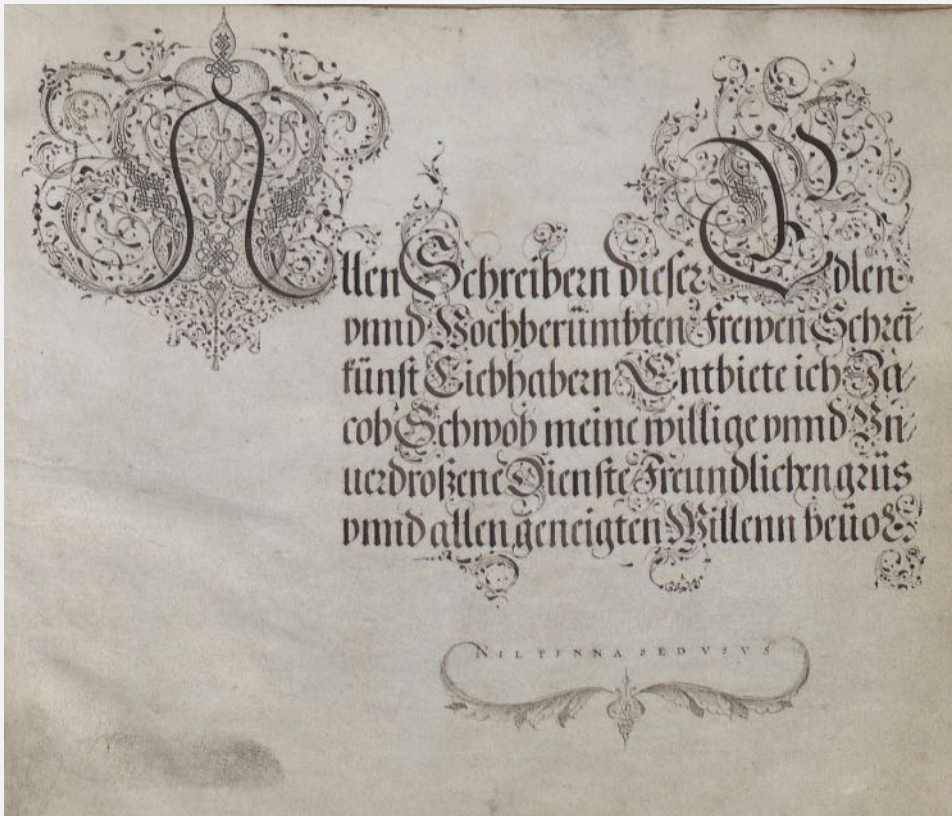 Allen Schreibern dieser Edlen
vnnd Hochberümbten Freyen Schrei
künst Liebhabern Entbiete ich Ja
cob Schwob meine willige vnnd Vn
uerdroßene Dienste Freundlichen grüs
vnnd allen geneigten Willenn beüor
NIL PENNA SED VSVS